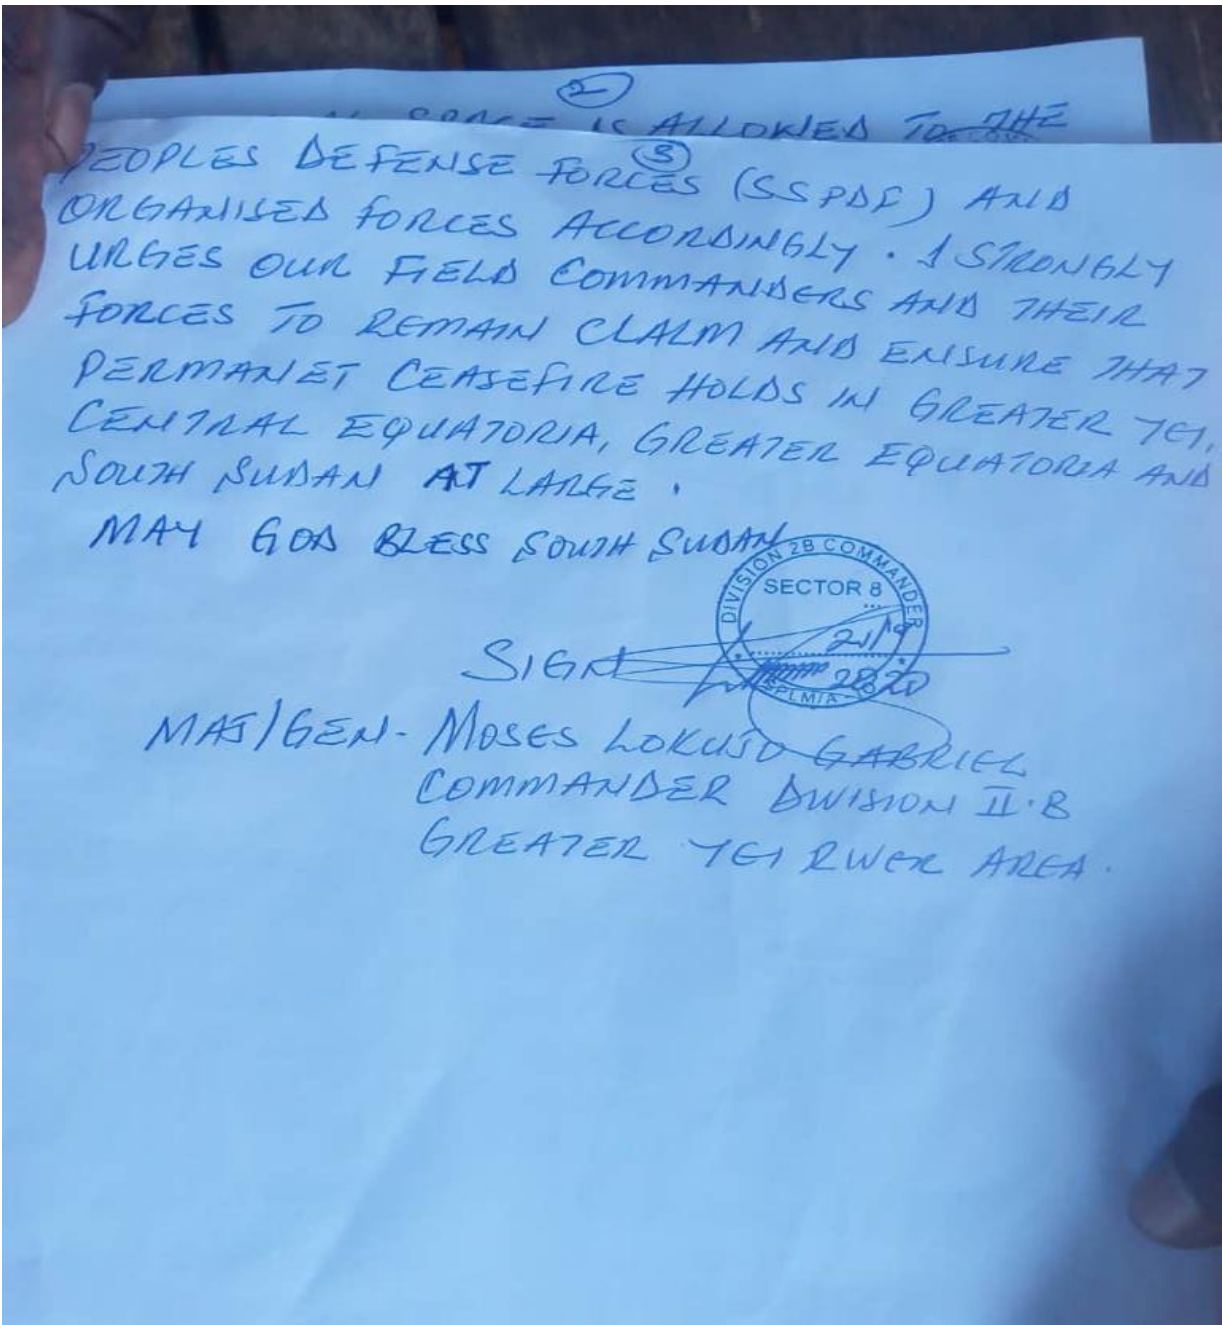 2
SPACE IS ALLOWED TO THE
3
PEOPLES DEFENSE FORCES (SSPDF) AND
ORGANISED FORCES ACCORDINGLY. I STRONGLY
URGES OUR FIELD COMMANDERS AND THEIR
FORCES TO REMAIN CLALM AND ENSURE THAT
PERMANET CEASEFIRE HOLDS IN GREATER YEI,
CENTRAL EQUATORIA, GREATER EQUATORIA AND
SOUTH SUDAN AT LARGE.
MAY GOD BLESS SOUTH SUDAN
DIVISION 2B COMMANDER
SECTOR 8
21/9
2020
SPLM/A-IO
SIGN
MAJ/GEN- MOSES LOKUJO GABRIEL
COMMANDER DIVISION II.B
GREATER YEI RIVER AREA.